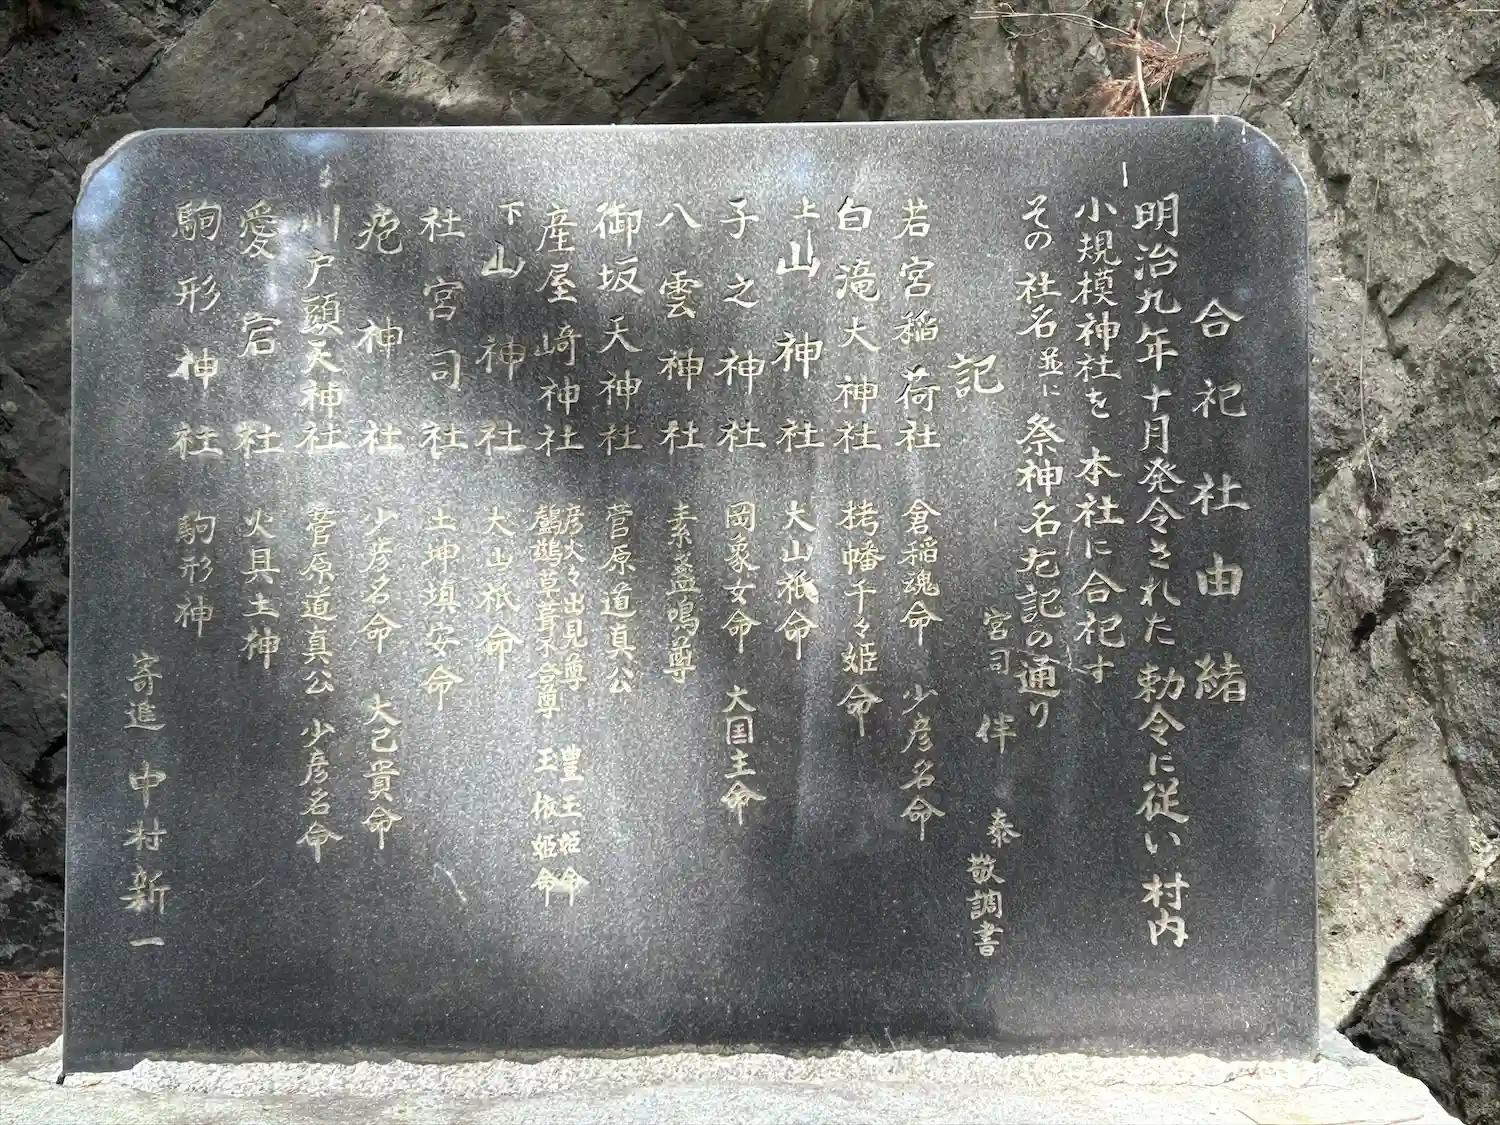 合祀社由緒
明治九年十月発令された勅令に従い村内
小規模神社を本社に合祀す
その社名並に祭神名左記の通り
宮司 伴 泰 敬調書
記
若宮稲荷社 倉稲魂命 少彦名命
白滝大神社 栲幡千々姫命
上山神社 大山祇命
子之神社 岡象女命 大国主命
八雲神社 素盞嗚尊
御坂天神社 菅原道真公
産屋崎神社 彦火々出見尊 豊玉姫命
鸕鷀草葺不合尊 玉依姫命
下山神社 大山祇命
社宮司社 土坤埴安命
疱神社 少彦名命 大己貴命
川戸頭天神社 菅原道真公 少彦名命
愛宕社 火具土神
駒形神社 駒形神
寄進 中村新一